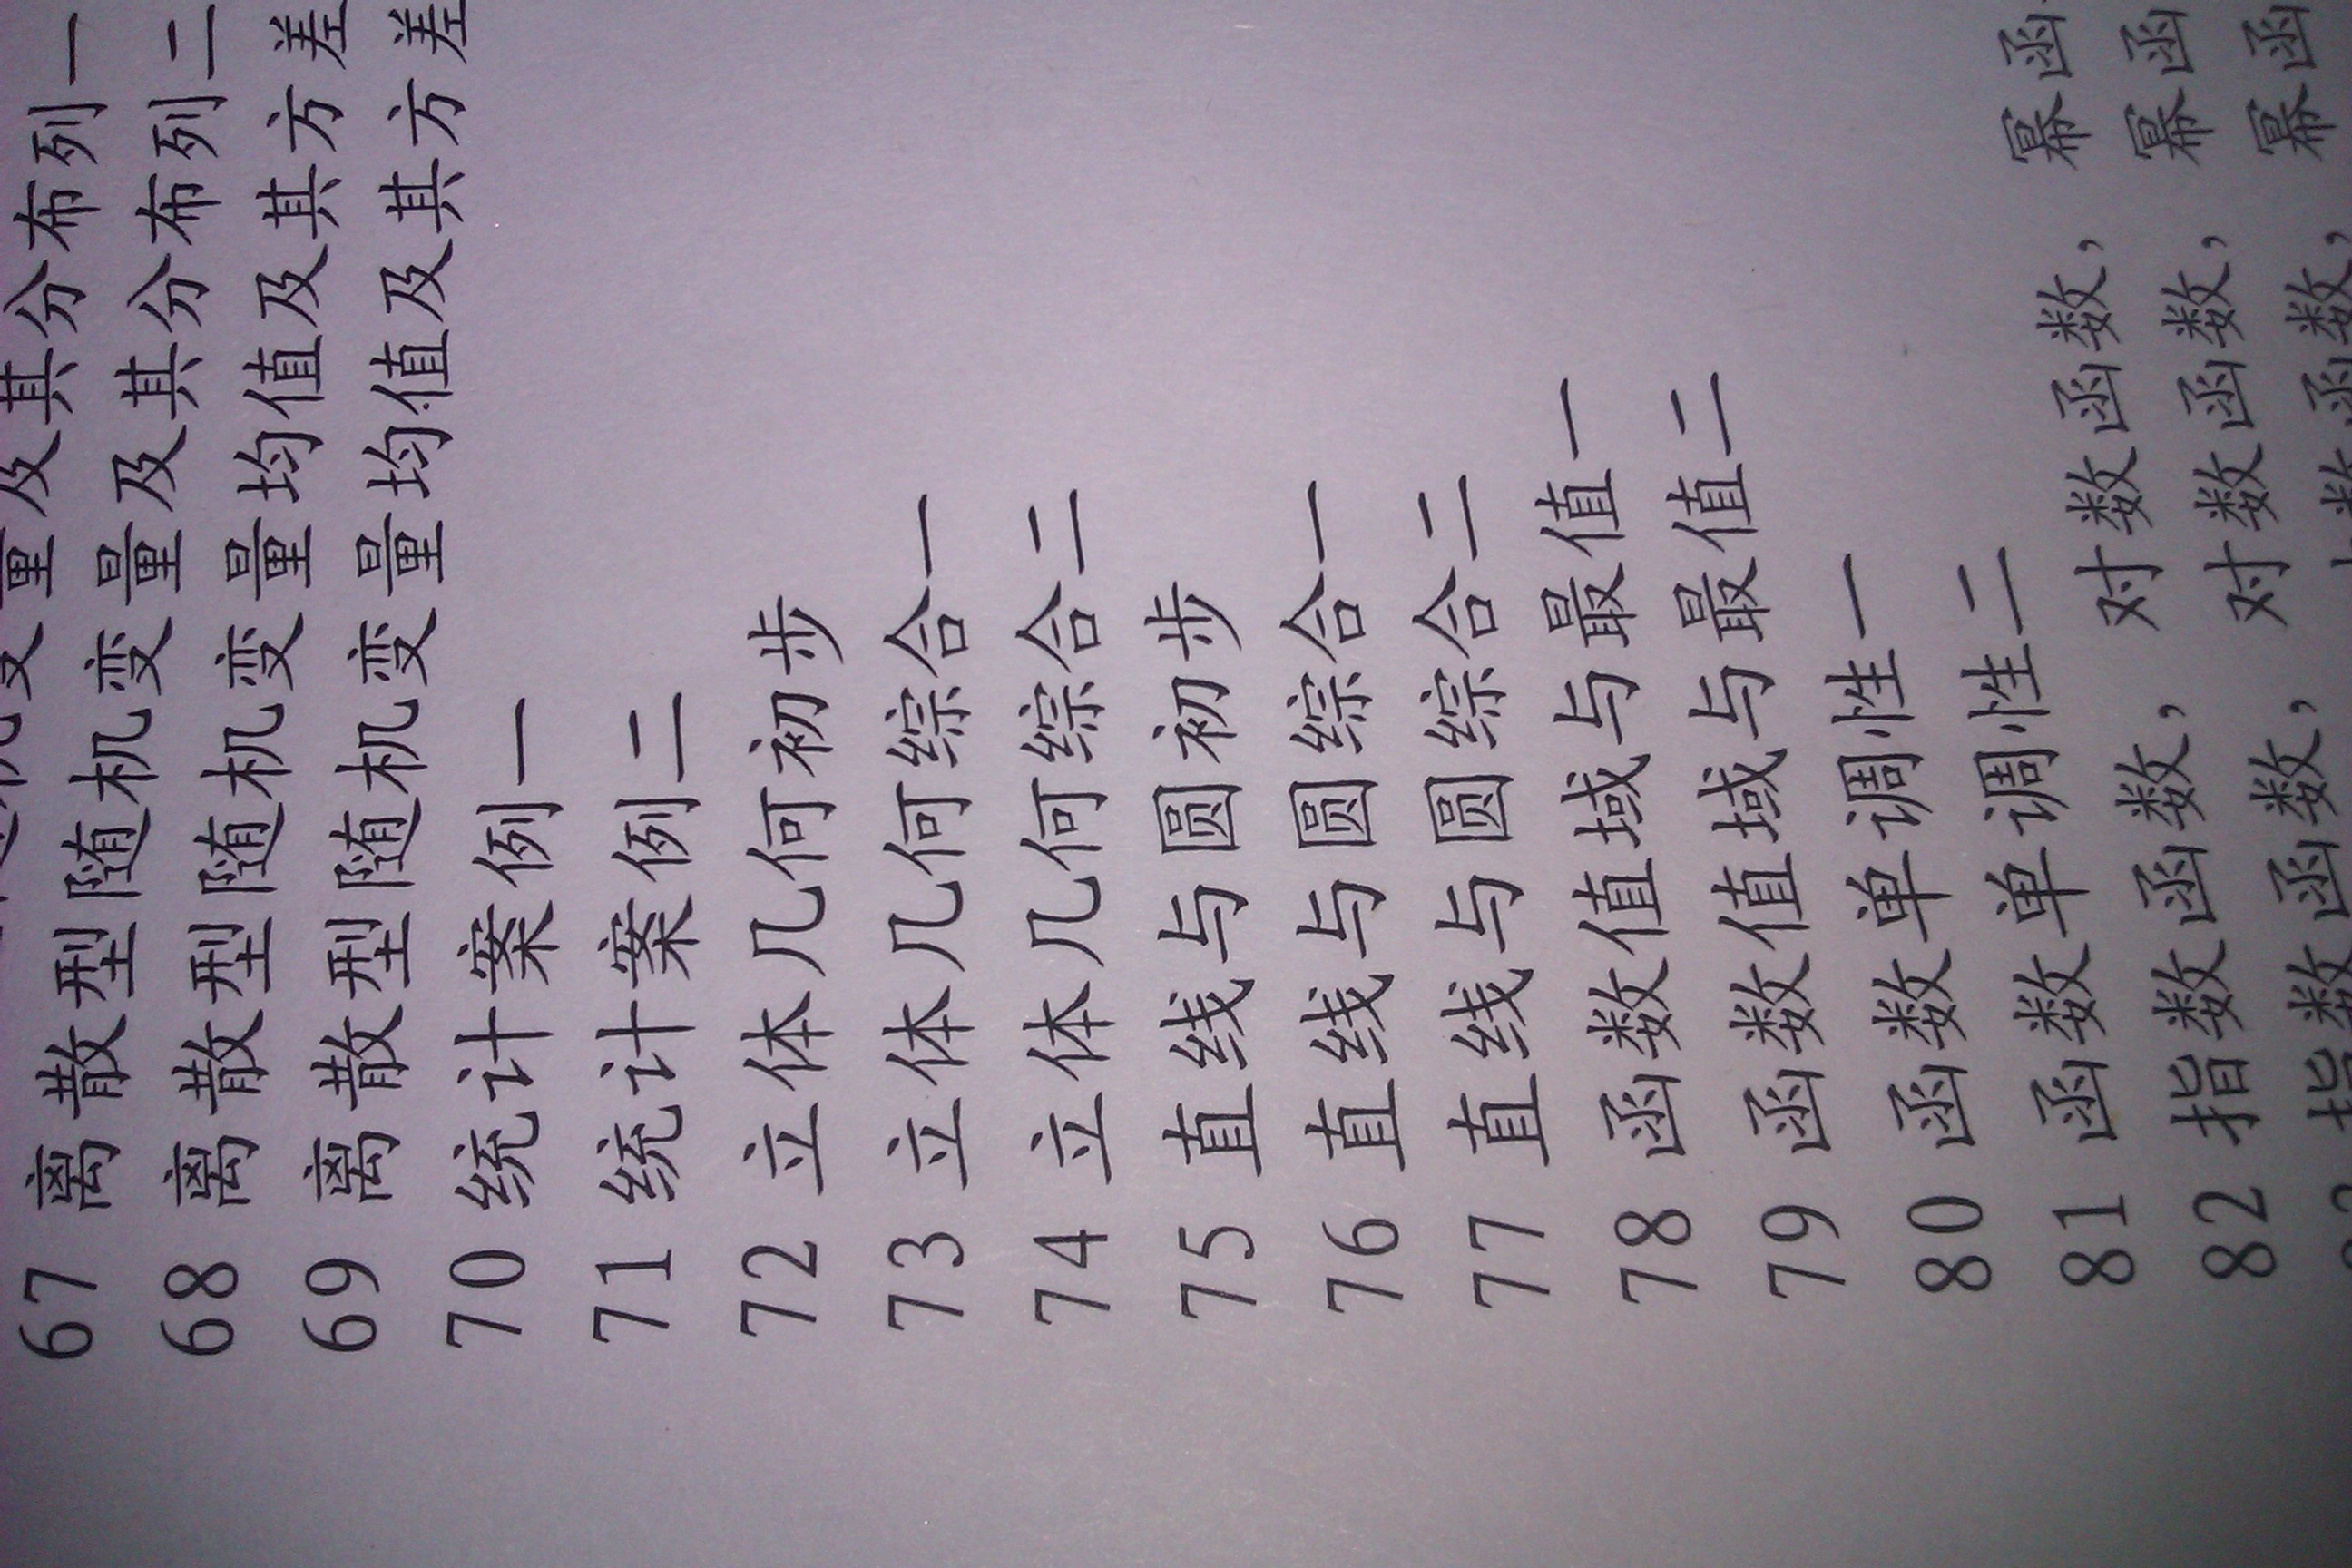 变量及其分布列一
67 离散型随机变量及其分布列二
68 离散型随机变量均值及其方差
69 离散型随机变量均值及其方差
70 统计案例一
71 统计案例二
72 立体几何初步
73 立体几何综合一
74 立体几何综合二
75 直线与圆初步
76 直线与圆综合一
77 直线与圆综合二
78 函数值域与最值一
79 函数值域与最值二
80 函数单调性一
81 函数单调性二
82 指数函数，对数函数，幂函
指数函数，对数函数，幂函
数函数，幂函